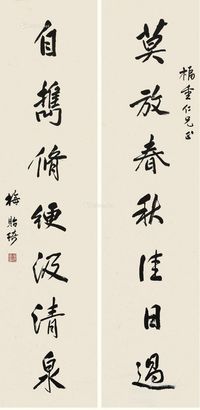 仁兄正
莫放春秋佳日過
自擕脩綆汲清泉
梅貽琦